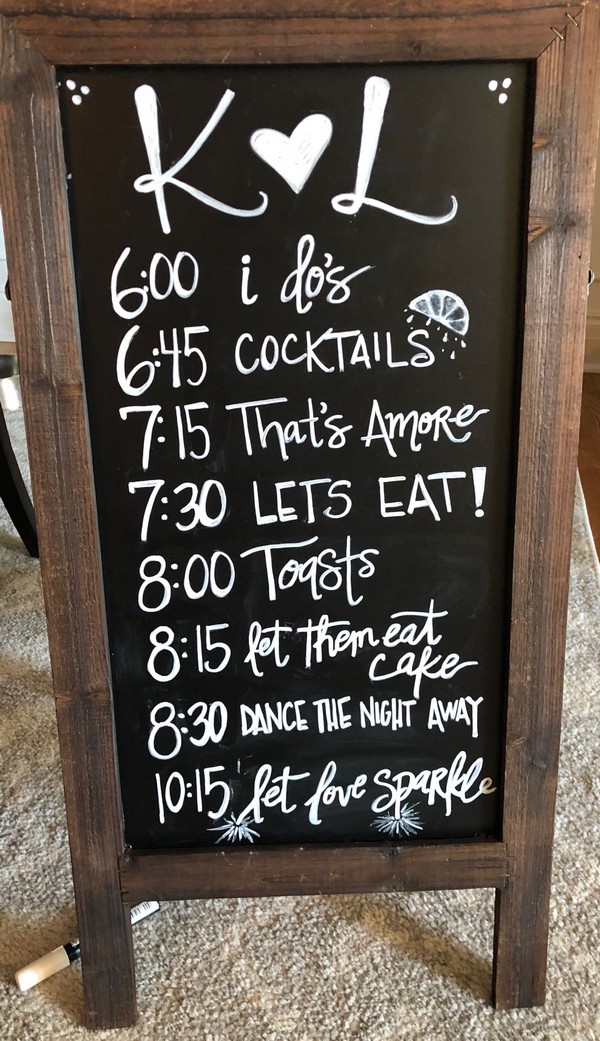 K ♥ L
6:00 i do's
6:45 COCKTAILS
7:15 That's Amore
7:30 LETS EAT!
8:00 Toasts
8:15 let them eat
cake
8:30 DANCE THE NIGHT AWAY
10:15 let love sparkle